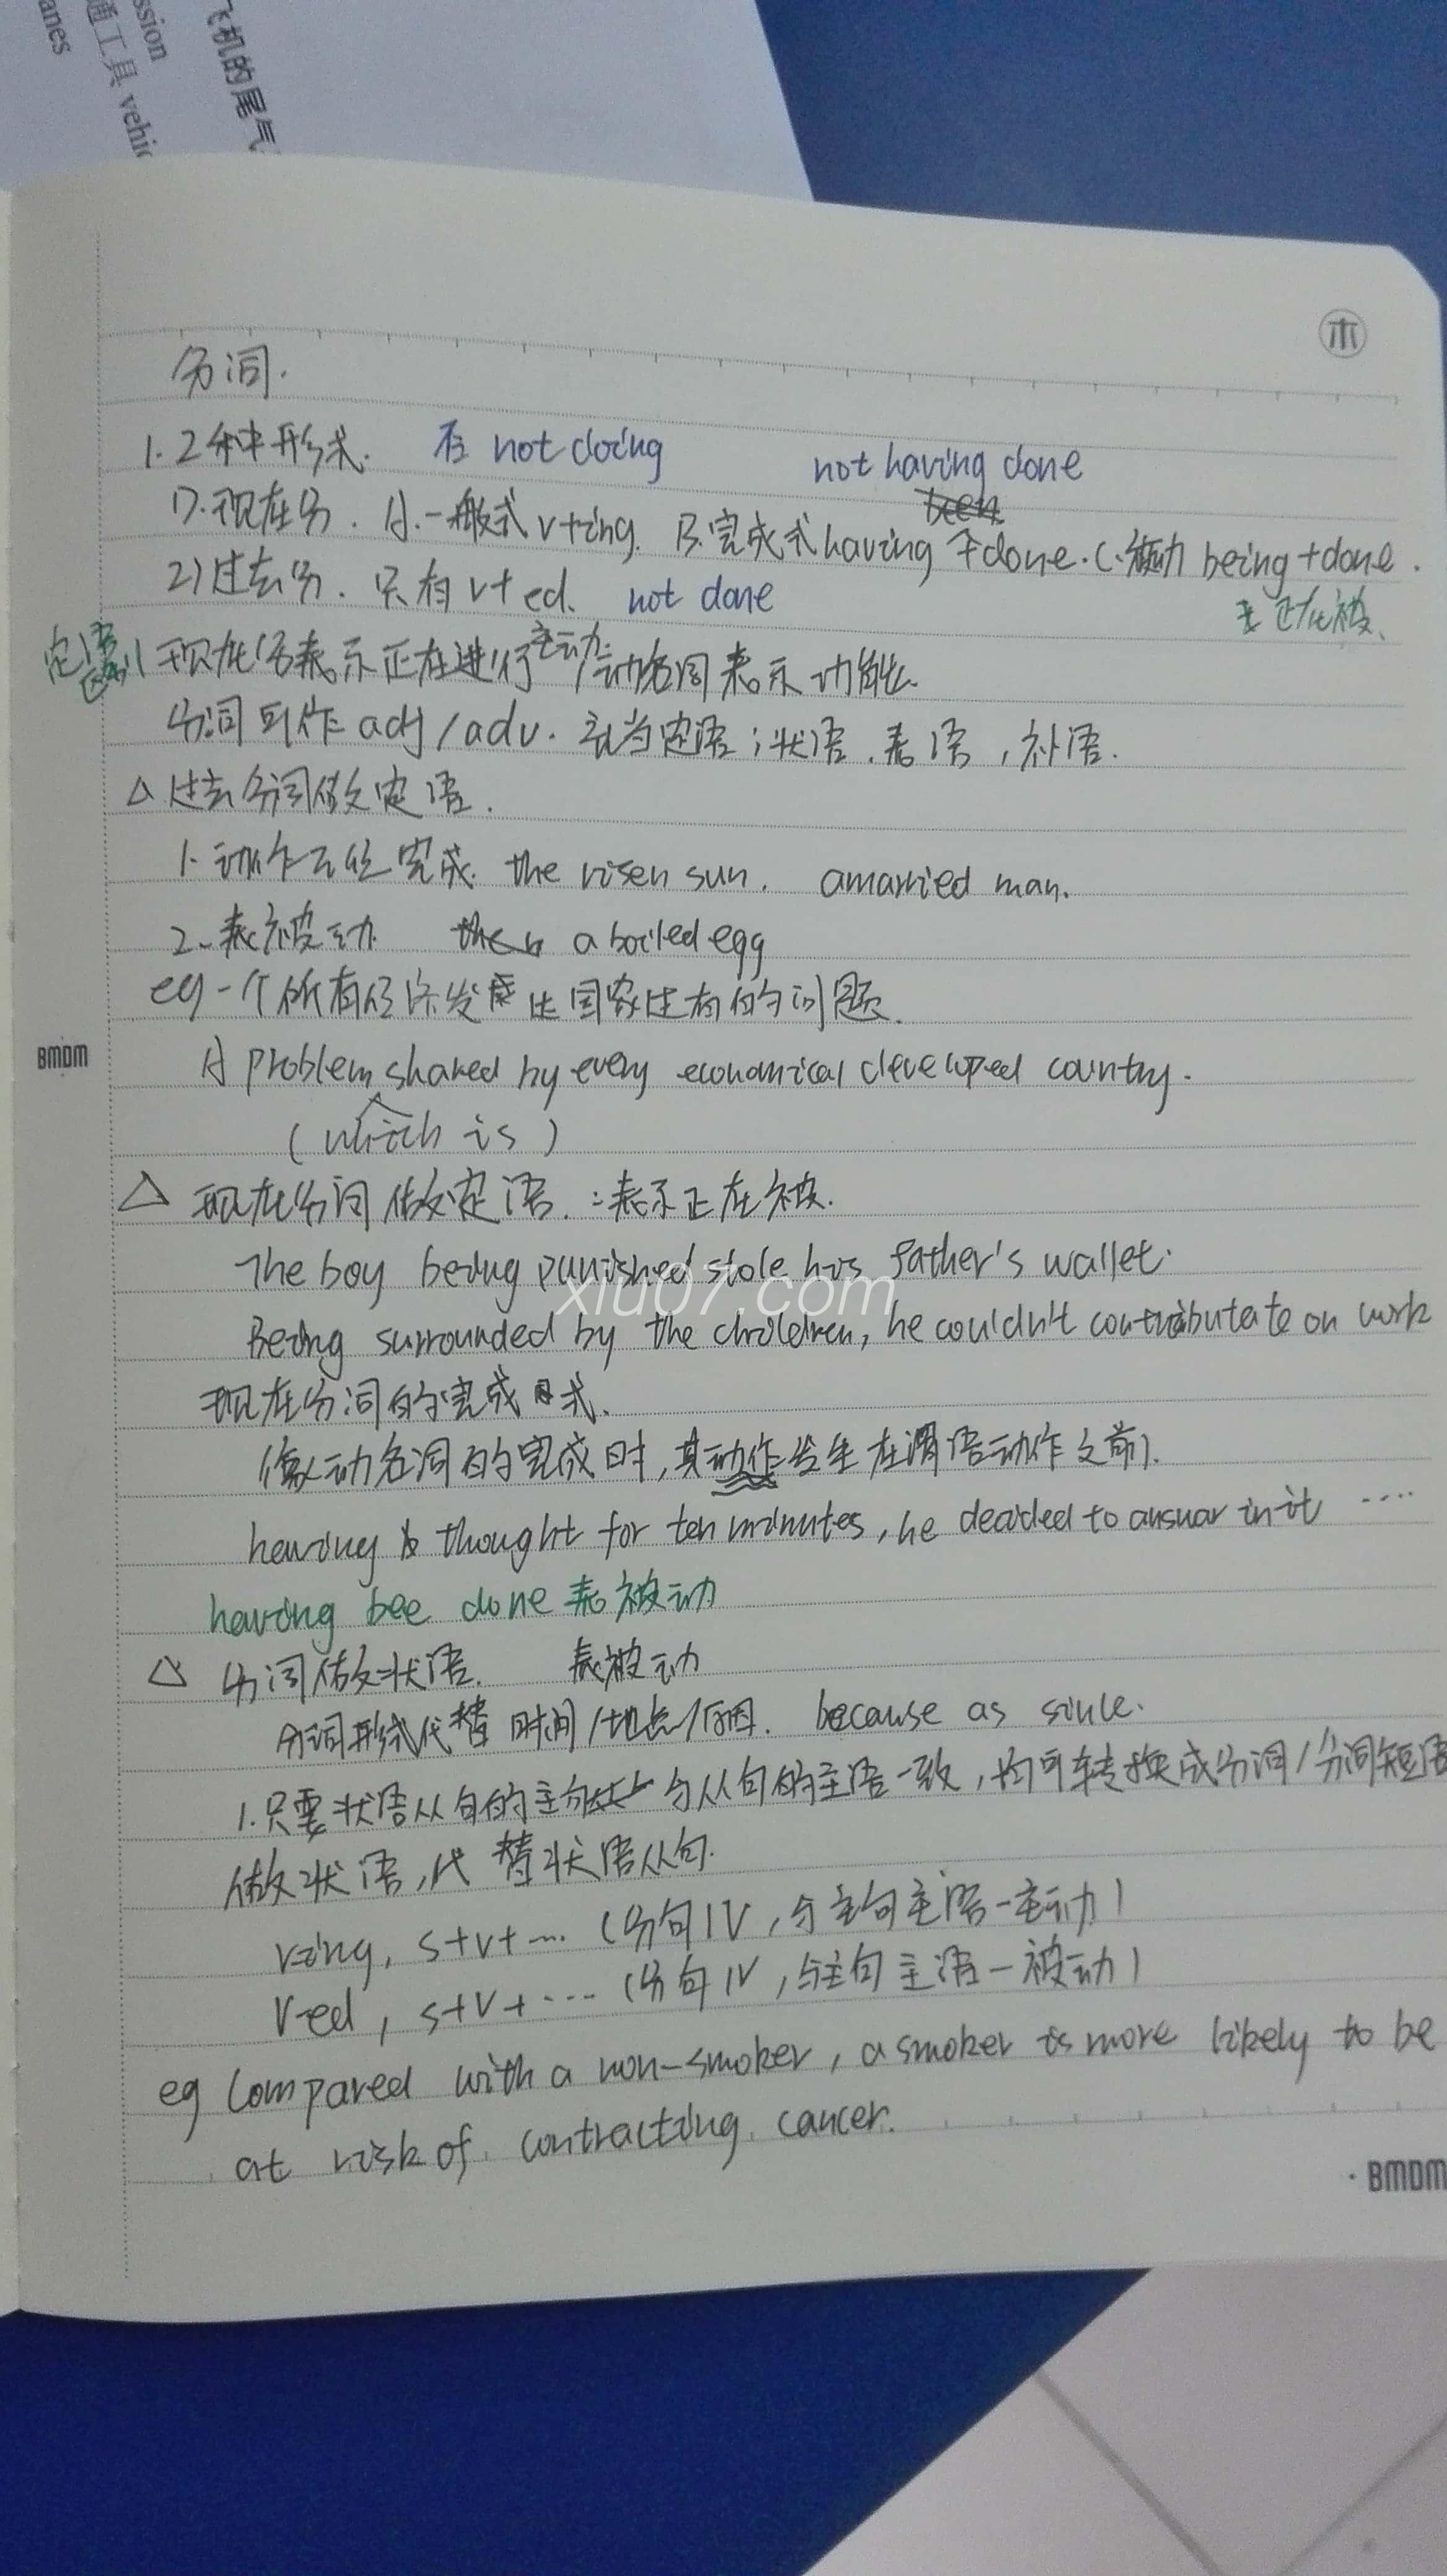 ssion
anes
通工具 vehic
飞机的尾气
木
分词.
1. 2种形式. 否 not doing not having done
1).现在分. A.一般式 v+ing. B.完成式having +done. C.被动 being+done.
2)过去分. 只有v+ed. not done
表正在被.
定语
区别 现在分表示正在进行主动. 动名词表示功能.
分词可作adj/adv. 就当定语;状语.表语,补语.
△过去分词做定语.
1.动作已经完成. the risen sun. a married man.
2.表被动. a boiled egg
eg 一个所有经济发展比国家共有的问题.
A problem shared by every economical developed country.
(which is)
BMDM
△ 现在分词做定语.:表示正在被.
The boy being punished stole his father's wallet.
xiu07.com
Being surrounded by the children, he couldn't contributate on work
现在分词的完成 式.
像动名词的完成时,其动作发生在谓语动作之前.
having thought for ten minutes, he decided to answar in it ....
having bee done 表被动
△ 分词做状语. 表被动
分词形式代替 时间/地点/原因. because as sinle.
1.只要状语从句的主 与从句的主语一致,均可转换成分词/分词短语
做状语,代替状语从句.
v-ing, s+v+... (分句1V,与主句主语-主动)
V-ed, s+v+... (分句1V,与主句主语-被动)
eg Compared with a non-smoker, a smoker is more likely to be
at risk of contracting cancer.
BMDM